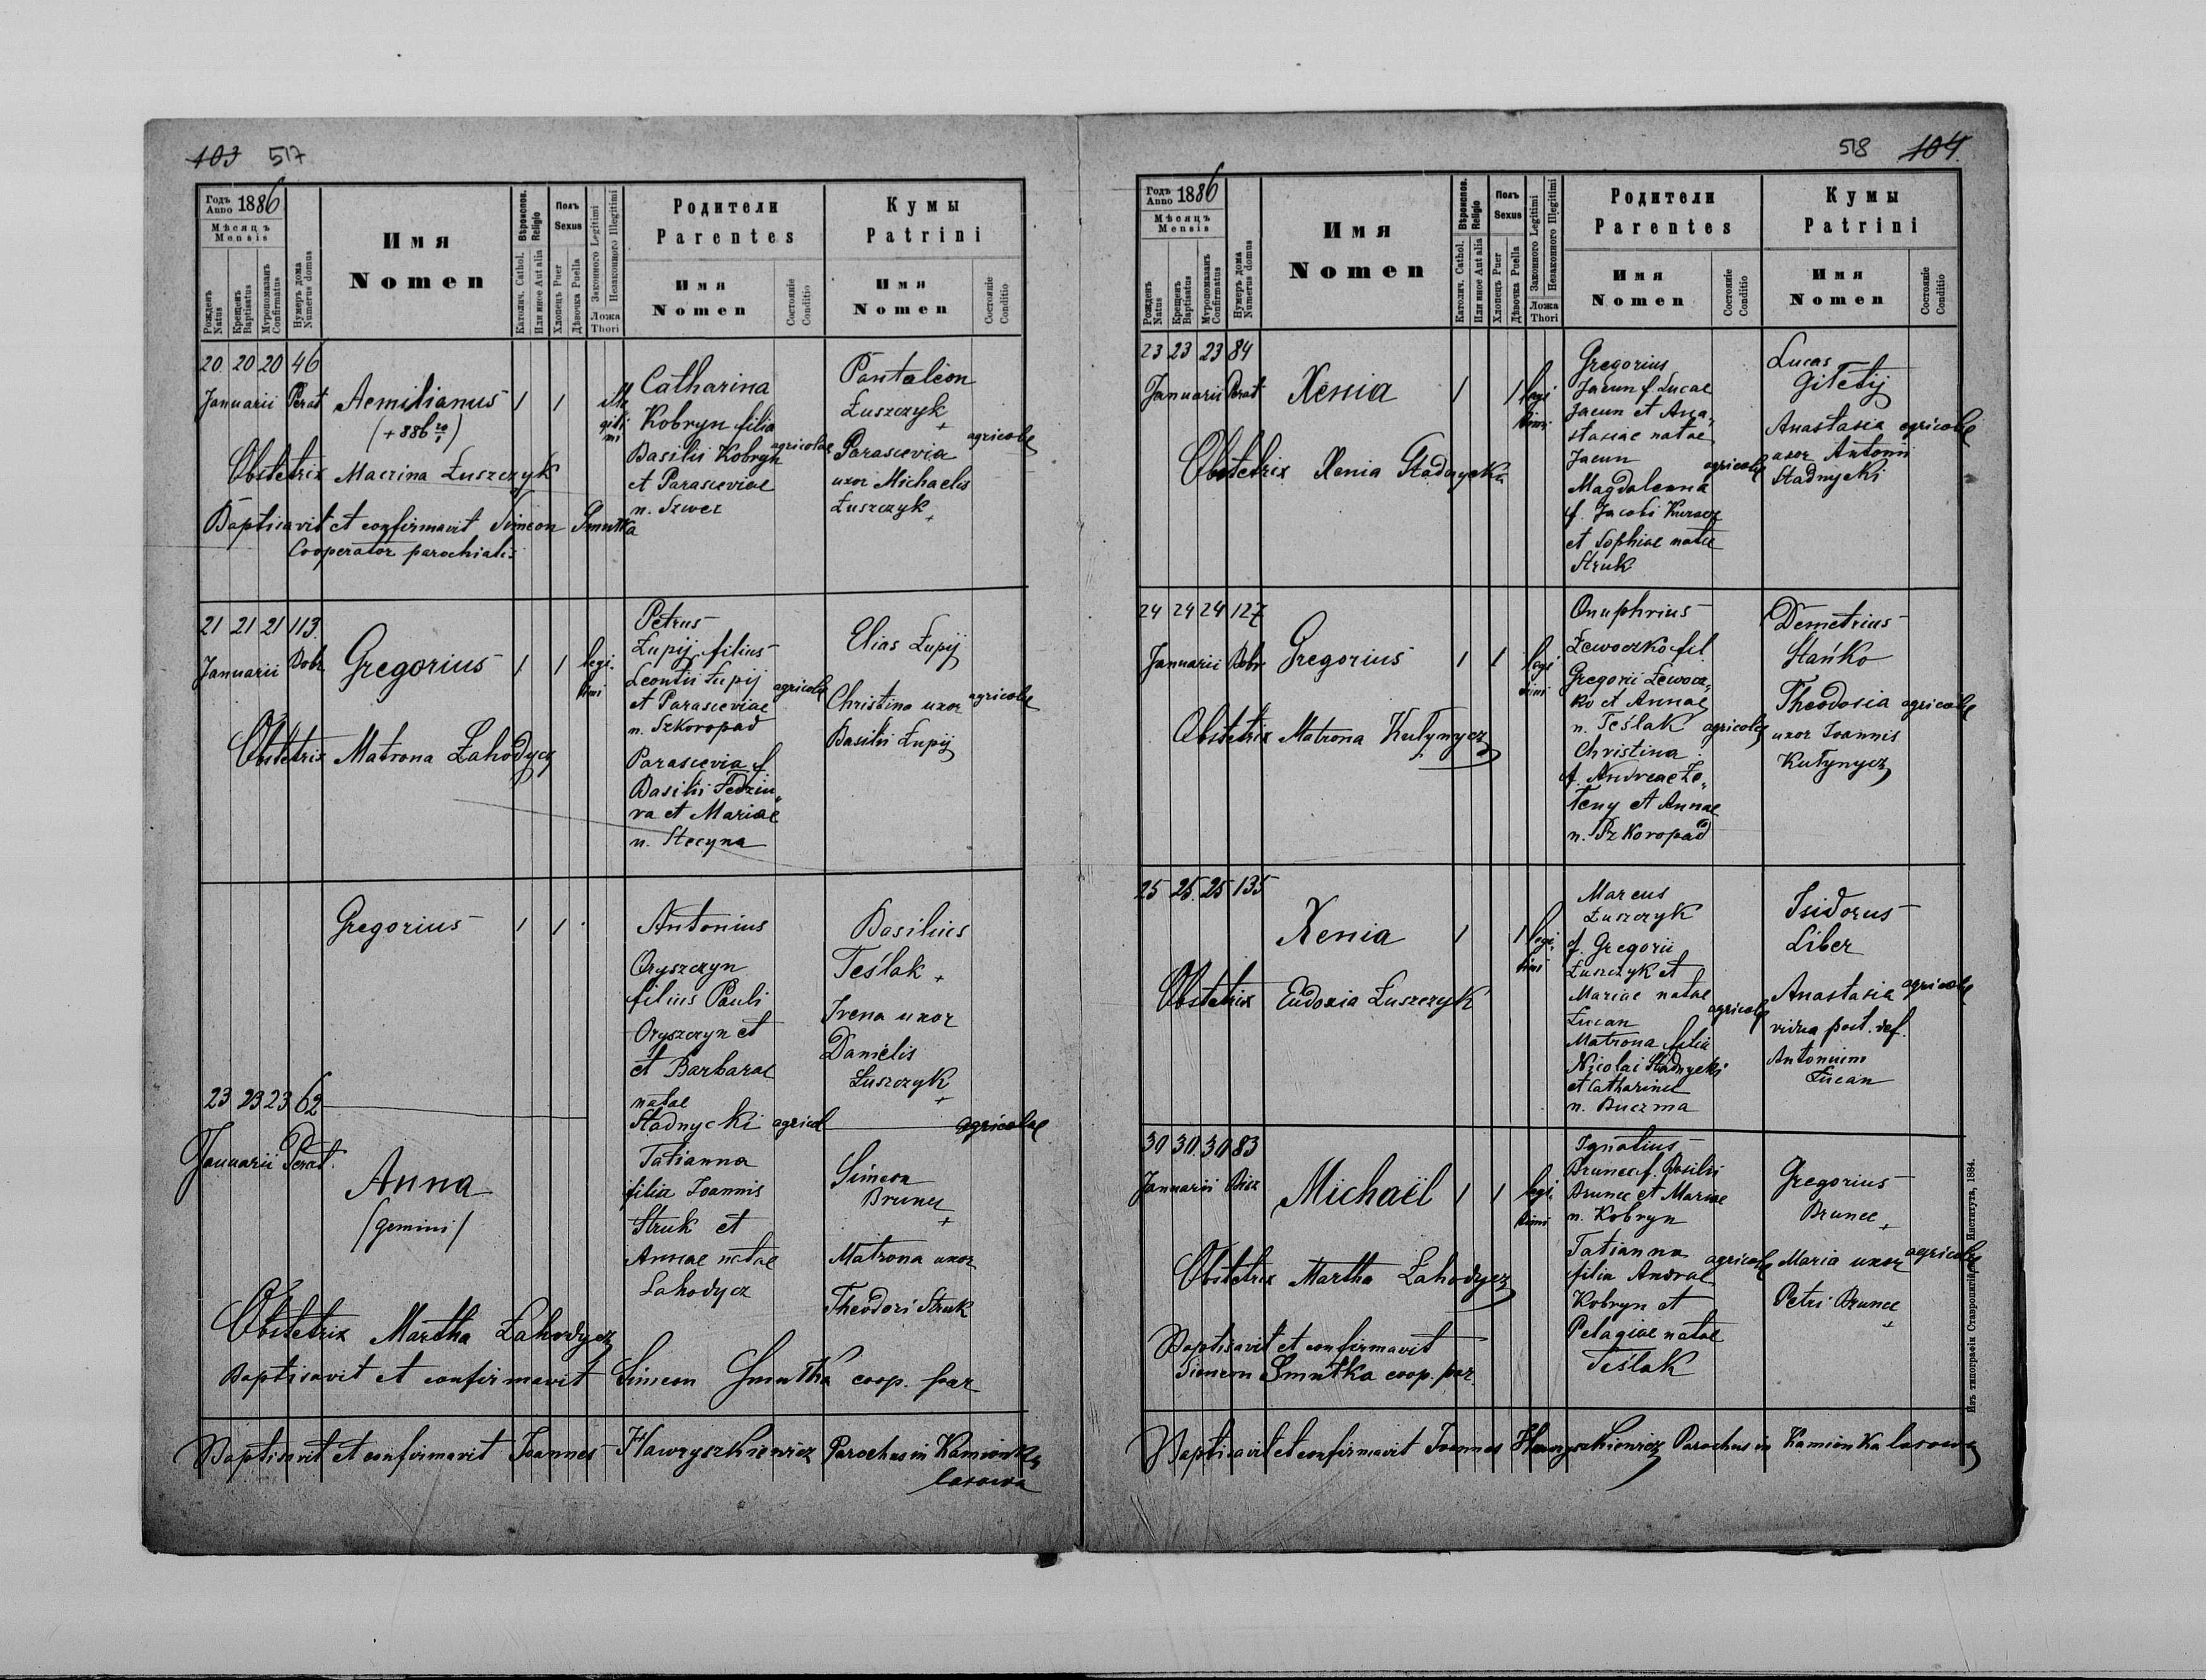 103 517
Годъ Anno 1886
Мѣсяцъ Mensis
Рожденъ Natus
Крещенъ Baptisatus
Мѵропомазанъ Confirmatus
Нумеръ дома Numerus domus
Имя Nomen
Вѣроиспов. Religio
Католич. Cathol.
Или иное Aut alia
Полъ Sexus
Хлопецъ Puer
Дѣвочка Puella
Законного Legitimi
Незаконного Illegitimi
Ложа Thori
Родители Parentes
Имя Nomen
Состояніе Conditio
Кумы Patrini
Имя Nomen
Состояніе Conditio
20 20 20 46
Januarii Perat
Aemilianus 1 1 ille giti mi
(+ 886 20/1)
Catharina
Kobryn filia
Basilii Kobryn agricolae
et Parasceviae
n. Szwec
Pantaleon
Łuszczyk +
Parascevia agricolae
uxor Michaelis
Łuszczyk +
Obstetrix Macrina Łuszczyk
Baptisavit et confirmavit Simeon Smutka
Cooperator parochialis
21 21 21 113
Januarii Bobr
Gregorius 1 1 legi timi
Petrus
Łupij filius
Leontii Łupij agricolae
et Parasceviae
n. Szkoropad
Parascevia f
Basilii Fedziu„
ra et Mariae
n. Stecyna
Elias Łupij
Christina uxor agricolae
Basilii Łupij
Obstetrix Matrona Łahodycz
Gregorius 1 1
Antonius
Oryszczyn
filius Pauli
Oryszczyn et
et Barbarae
natae
Stadnycki agricol
Basilius
Teślak +
Irena uxor
Danielis
Łuszczyk +
agricolae
23 23 23 62
Januarii Perat.
Anna
(gemini)
Tatianna
filia Joannis
Struk et
Annae natae
Lahodycz
Simeon
Brunec +
Matrona uxor
Theodori Struk
Obstetrix Martha Łahodycz
Baptisavit et confirmavit Simeon Smutka coop. par
Baptisavit et confirmavit Joannes Hawryszkiewicz Parochus in Kamionka
lasowa
518 104.
Годъ Anno 1886
Мѣсяцъ Mensis
Рожденъ Natus
Крещенъ Baptisatus
Мѵропомазанъ Confirmatus
Нумеръ дома Numerus domus
Имя Nomen
Вѣроиспов. Religio
Католич. Cathol.
Или иное Aut alia
Полъ Sexus
Хлопецъ Puer
Дѣвочка Puella
Законного Legitimi
Незаконного Illegitimi
Ложа Thori
Родители Parentes
Имя Nomen
Состояніе Conditio
Кумы Patrini
Имя Nomen
Состояніе Conditio
23 23 23 84
Januarii Perat
Xenia 1 1 legi timi
Gregorius
Jacun f. Lucae
Jacun et Ana„
stasiae natae
Jacun agricolae
Magdalenna
f. Jacobi Kuracz
et Sophiae natae
Struk
Lucas
Gitetij
Anastasia agricolae
uxor Antonii
Stadnycki
Obstetrix Xenia Stadnycka
24 24 24 127
Januarii Bobr
Gregorius 1 1 legi timi
Onuphrius
Łewoczko fil.
Gregorii Łewocz„
ko et Annae
n. Teślak agricolae
Christina
f. Andreae Łe„
teny et Annae
n. Szkoropad
Demetrius
Stańko
Theodosia agricolae
uxor Joannis
Kutynycz
Obstetrix Matrona Kutynycz
25 25 25 135
Xenia 1 1 legi timi
Marcus
Łuszczyk
f. Gregorii
Łuszczyk et
Mariae natae
Łucan agricolae
Matrona filia
Nicolai Stadnycki
et Catharinae
n. Buczma
Isidorus
Liber
Anastasia agricolae
vidua post. def.
Antonium
Łucan
Obstetrix Eudoxia Łuszczyk
30 30 30 83
Januarii Bisz
Michaël 1 1 legi timi
Ignatius
Brunec f. Basilii
Brunec et Mariae
n. Kobryn
Tatianna agricolae
filia Andreae
Kobryn et
Pelagiae natae
Teślak
Gregorius
Brunec +
Maria uxor agricolae
Petri Brunec +
Obstetrix Martha Łahodycz
Baptisavit et confirmavit
Simeon Smutka coop. par.
Baptisavit et confirmavit Joannes Hawryszkiewicz Parochus in Kamionka lasowa
Изъ типографіи Ставропигійского Института, 1884.